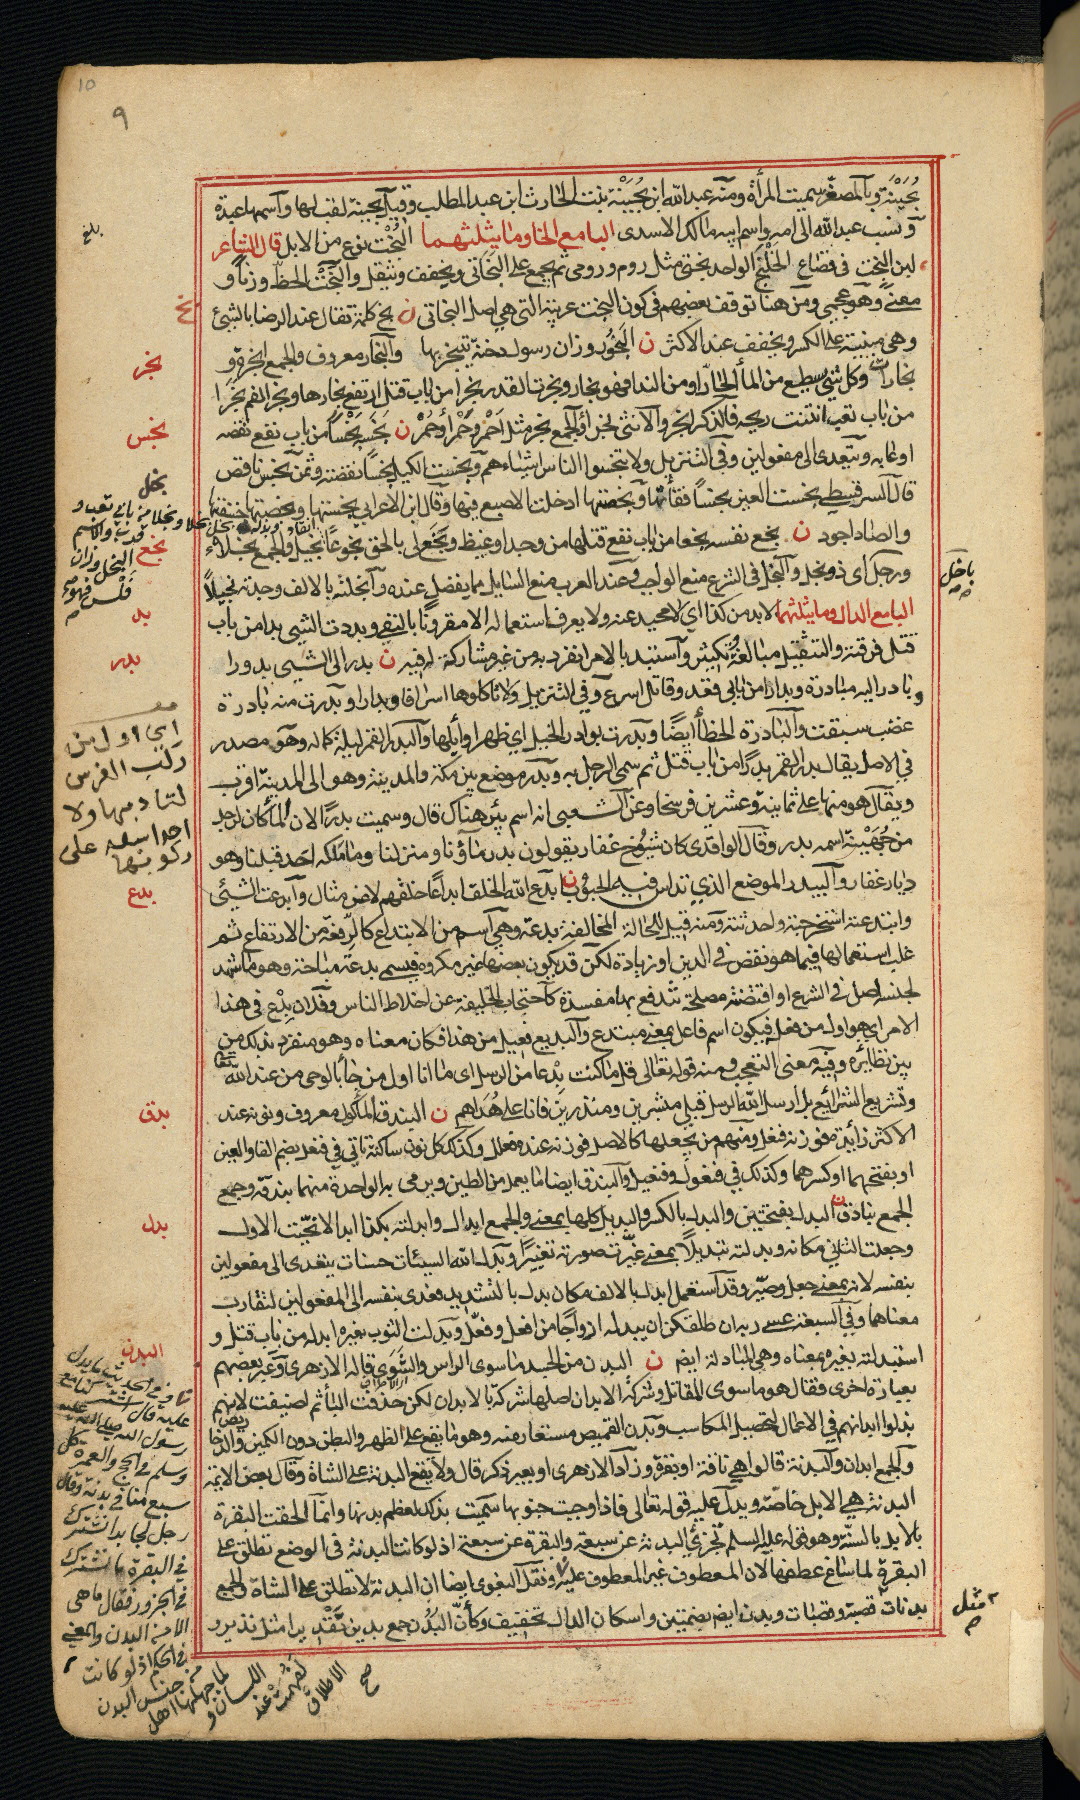 بُحَيْنَة وبالمصغّر سميت المرأة ومنه عبد الله ابن بُحَيْنَة بنت الحارث ابن عبد المطلب وقيل بحينة لقب لها واسمها عبدة
ونسب عبد الله الى امه واسم ابيه مالك الاسدى البا مع الخا وما يثلثهما البُخْت نوع من الابل قال الشاعر
لبن البخت فى قصاع الخَلَنْجِ الواحد بختى مثل روم ورومى ثم يجمع على البخاتى ويخفف ويثقل والبَخْت الحظّ وزنا و
معنىً وهو عجمى ومن هنا توقف بعضهم فى كون البخت عربية التى هى اصل البخاتى ن بخ كلمة تقال عند الرضا بالشئ
وهى مبنية على الكسر ويخفف عند الاكثر ن البَخُور وزان رسول دخنة يتبخر بها والبخار معروف والجمع ابخرة و
بخارات وكل شئ يسطع من المأ الحَارّ او من الندا فهو بخار وبخرت القدر بخرا من باب قتل ارتفع بخارها وبخر الفم بَخَرًا
من باب تعب انتنت ريحه فالذكر ابخر والانثى بخرأ والجمع بخر مثل احْمر وحَمْرأ وحُمْر ن بَخَسَه بَخْسًا من باب نفع نقصه
او عابه ويتعدى الى مفعولين وفى التنزيل ولا تبخسوا الناس اشياءهم وبخست الكيل بخسًا نقصته وثمن بخس ناقص
قال السرقسطى بخست العين بخسًا فقأتها وبخصتها ادخلت الاصبع فيها وقال ابن الاعرابى بخستها وبخصتها خسفتها
والصاد اجود ن بخع نفسه بخعا من باب نفع قتلها من وجد او غيظ وبَخَع لى بالحق بخوعًا انقاد وبذله بخل بخلا وبخلا من بابى تعب و
قرب والاسم
البخل وزان
فَلْس فهو
بخيل والجمع بخلاء
ورجل اى ذو بخل والبخل فى الشرع منع الواجب وعند العرب منع السايل مما يفضل عنده وابخلته بالالف وجدته بخيلاً
البا مع الدال وما يثلثهما لا بد من كذا اى لا محيد عنه ولا يعرف استعماله الا مقرونًا بالنفى وبددت الشيى بدا من باب
قتل فرقته والتثقيل مبالغة وتكثير واستبد بالامر انفرد به من غير مشاركة له فيه ن بدر الى الشيى بدورا
وبادر اليه مبادرة وبدارا من بابى قعد وقاتل اسرع وفى التنزيل ولا تاكلوها اسرافا وبدارا وبدرت منه بادرة
غضب سبقت والبادرة الخطأ ايضًا وبدرت بوادر الخيل اى ظهر اوايلها والبدر القمر ليلة كماله وهو مصدر
فى الاصل يقال بدر القمر بدرًا من باب قتل ثم سمى الرجل به وبدر موضع بين مكة والمدينة وهو الى المدينة اقرب
ويقال هو منها على ثمانية وعشرين فرسخا وعن الشعبى انه اسم بئر هناك قال وسميت بدرًا لان المأ كان لرجل
من جُهَيْنَة اسمه بدر وقال الواقدى كان شيوخ غفار يقولون بدر ماؤنا ومنزلنا وما ملكه احد قبلنا وهو
ديار غفار والبيدر الموضع الذى تداس فيه الحبوب ن بدع الله الخلق ابداعًا خلقهم لا من مثال وابدعت الشيئى
وابتدعته استخرجته واحدثته ومنه قيل للحالة المخالفة بدعة وهى اسم من الابتداع كالرِفعة من الارتفاع ثم
غلب استعمالها فيما هو نقص فى الدين او زيادة لكن قد يكون بعضها غير مكروه فيسمى بدعة مباحة وهو ما شهد
لجنسه اصل فى الشرع او اقتضته مصلحة تندفع بها مفسدة كاحتجاب الخليفة عن اخلاط الناس وفلان بِدْع فى هذا
الامر اى هو اول من فعله فيكون اسم فاعل بمعنى مبتدع والبديع فعيل من هذا فكان معناه وهو منفرد بذلك من
بين نظائره وفيه معنى التعجب ومنه قوله تعالى قل ما كنت بِدْعا من الرسل اى ما انا اول من جأ بالوحى من عند الله تعالى
وتشريع الشرائع بل ارسل الله الرسل قبلى مبشرين ومنذرين فانا على هُدَاهم ن البندق المأكول معروف ونونه عند
الاكثر زايدة فوزنه فنعل ومنهم من يجعلها كالاصل فوزنه عنده فعلل وكذلك كل نون ساكنة تاتى فى فنعل بضم الفا والعين
او بفتحهما او كسرهما وكذلك فى فنعول وفنعيل والبندق ايضا ما يعمل من الطين ويرمى به الواحدة منهما بندقة وجمع
الجمع بنادق ن البدل بفتحتين والبدل بالكسر والبديل كلها بمعنى والجمع ابدال وابدلته بكذا ابدالا نحّيت الاول
وجعلت الثانى مكانه وبدلته تبديلاً بمعنى غيّرت صورته تغييرًا وبدل الله السيئات حسنات يتعدى الى مفعولين
بنفسه لانه بمعنى جعل وصيّر وقد استعمل ابدل بالالف مكان بدل بالتشديد فعدى بنفسه الى المفعولين لتقارب
معناهما وفى السبعة عسى ربه ان طلقكن ان يبدله ازواجًا من افعل وفعّل وبدلت الثوب بغيره ابدله من باب قتل و
استبدلته بغيره بمعناه وهى المبادلة ايض ن البدن من الجسد ما سوى الراس والشَّوى قاله الازهرى وعبر بعضهم
بعبارة اخرى فقال هو ما سوى المقاتل وشركة الابدان اصلها شركة بالابدان لكن حذفت البأ ثم اضيفت لانهم
بذلوا ابدانهم فى الاعمال لتحصيل المكاسب وبدن القميص مستعار منه وهو ما يقع على الظهر والبطن دون الكمين والدخاريص
والجمع ابدان والبدنة قالوا هى ناقة او بقرة وزاد الازهرى او بعير ذكر قال ولا يقع البدنة على الشاة وقال بعض الائمة
البدنة هى الابل خاصّة ويدل عليه قوله تعالى فاذا وجبت جنوبها سميت بذلك لعظم بدنها وانما الحقت البقرة
بالابل بالسنّة وهو قوله عليه السلم تجزئ البدنة عن سبعة والبقرة عن سبعة اذ لو كانت البدنة فى الوضع تطلق على
البقرة لما ساغ عطفها لان المعطوف غير المعطوف عليه ونقل البغوى ايضا ان البدنة لا تطلق على الشاة والجمع
بدنات قصبة وقصبات وبدن ايض بضمتين واسكان الدال تخفيف وكأنّ البُدُن جمع بدين تقديرا مثل نذير و
٩
10
بلغ
بخ
بخر
بخس
بخل
بخع
بد
بدر
اى اول من
ركب الفرس
لتادبها ولا
احد اسبقه على
ركوبها
بدع
بدق
بدل
البدن
وفى الحديث ما يدل
عليه قال اشتركنا مع
رسول الله صلى الله عليه
وسلم فى الحج والعمرة كل
سبع منا فى بدنة وقال
رجل لجابر انشترك
فى البقرة ما نشترك
فى الجزور فقال ما هى
الا من البدن والمعنى
فى الحكم اذ لو كانت
من جنس البدن
لما جهلها اهل
اللسان و
لفهمت عند
الاطلاق
صح
باخل
مثل